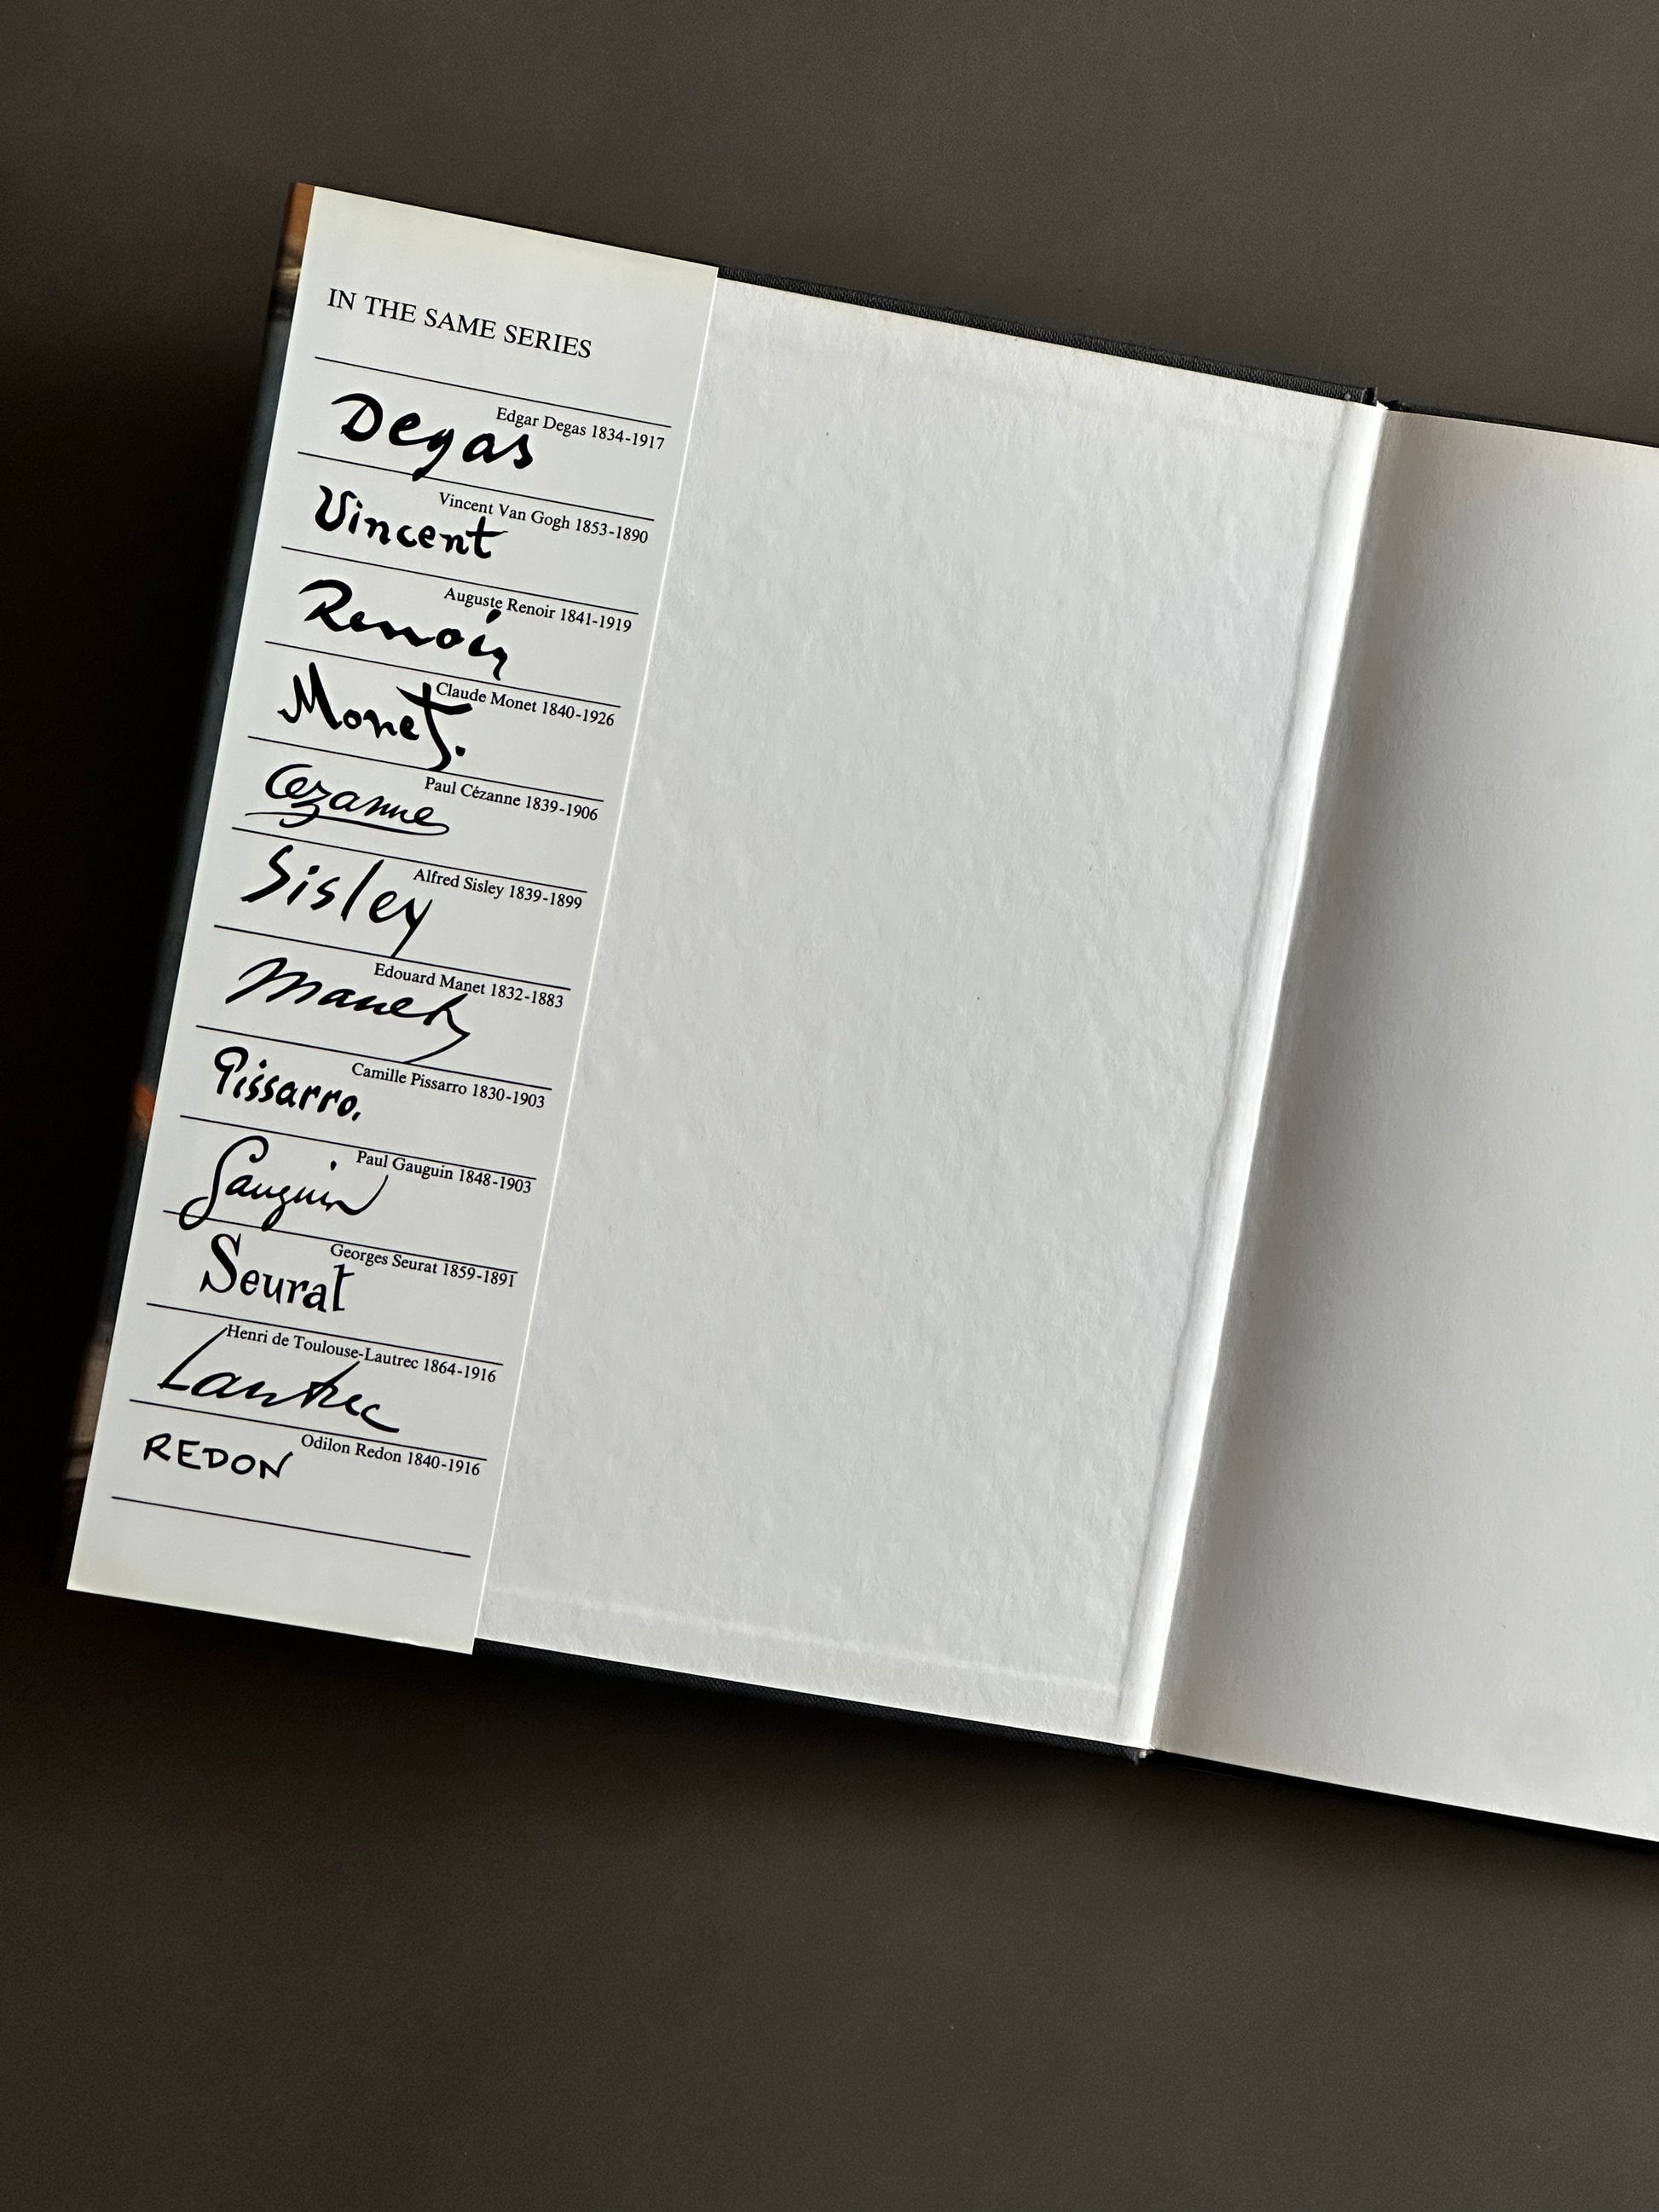 IN THE SAME SERIES
Edgar Degas 1834-1917
Degas
Vincent Van Gogh 1853-1890
Vincent
Auguste Renoir 1841-1919
Renoir
Claude Monet 1840-1926
Monet.
Paul Cézanne 1839-1906
Cezanne
Alfred Sisley 1839-1899
Sisley
Edouard Manet 1832-1883
Manet
Camille Pissarro 1830-1903
Pissarro.
Paul Gauguin 1848-1903
Gauguin
Georges Seurat 1859-1891
Seurat
Henri de Toulouse-Lautrec 1864-1916
Lautrec
Odilon Redon 1840-1916
REDON